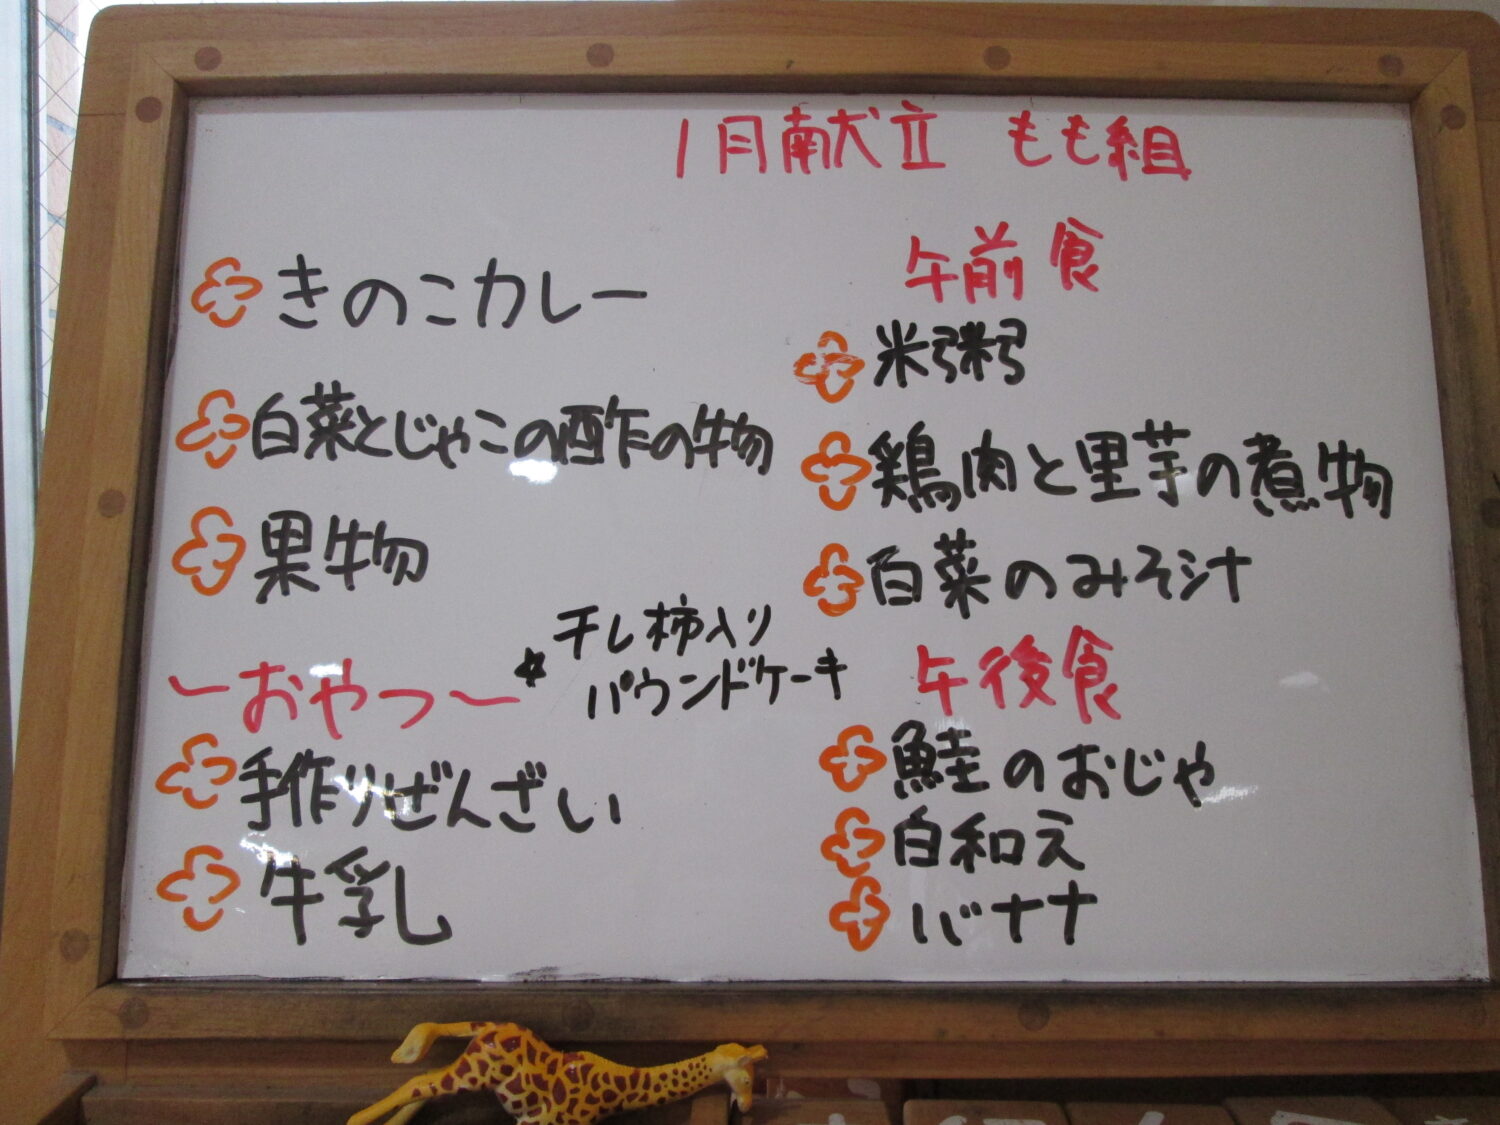 1月献立 もも組
きのこカレー
白菜とじゃこの酢の物
果物
〜おやつ〜
*干し柿入り
パウンドケーキ
手作りぜんざい
牛乳
午前食
米粥
鶏肉と里芋の煮物
白菜のみそ汁
午後食
鮭のおじや
白和え
バナナ